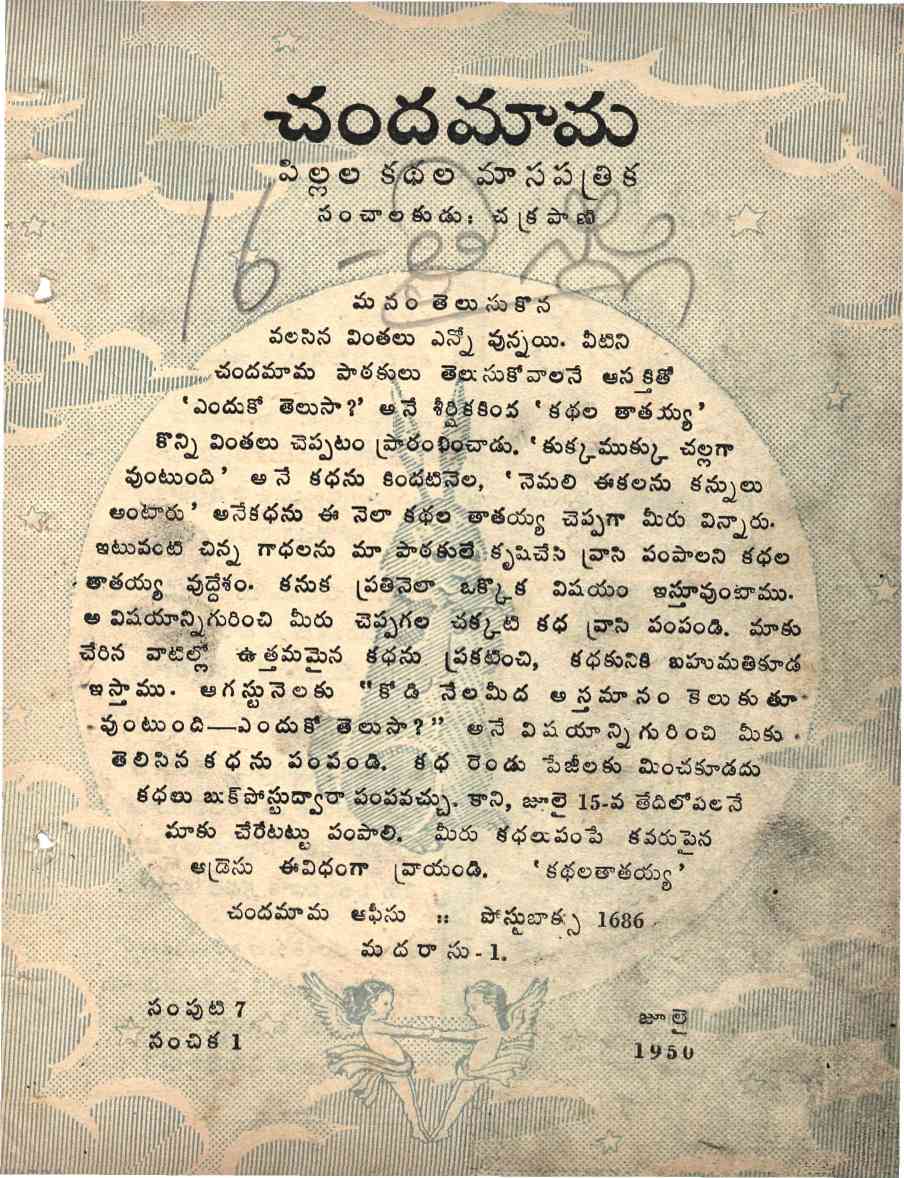 చందమామ
పిల్లల కథల మాసపత్రిక
సంచాలకుడు: చక్రపాణి
16 -
మనం తెలుసుకొన
వలసిన వింతలు ఎన్నో వున్నయి. వీటిని
చందమామ పాఠకులు తెలుసుకోవాలనే ఆసక్తితో
'ఎందుకో తెలుసా?' అనే శీర్షికకింద 'కథల తాతయ్య'
కొన్ని వింతలు చెప్పటం ప్రారంభించాడు. 'కుక్కముక్కు చల్లగా
వుంటుంది' అనే కథను కిందటినెల, 'నెమలి ఈకలను కన్నులు
అంటారు' అనేకథను ఈ నెలా కథల తాతయ్య చెప్పగా మీరు విన్నారు.
ఇటువంటి చిన్న గాధలను మా పాఠకులే కృషిచేసి వ్రాసి పంపాలని కథల
తాతయ్య వుద్దేశం. కనుక ప్రతినెలా ఒక్కొక విషయం ఇస్తూవుంటాము.
ఆ విషయాన్నిగురించి మీరు చెప్పగల చక్కటి కధ వ్రాసి పంపండి. మాకు
చేరిన వాటిల్లో ఉత్తమమైన కథను ప్రకటించి, కధకునికి బహుమతికూడ
ఇస్తాము. ఆగస్టునెలకు "కోడి నేలమీద అస్తమానం కెలుకుతూ
వుంటుంది—ఎందుకో తెలుసా?" అనే విషయాన్నిగురించి మీకు
తెలిసిన కధను పంపండి. కధ రెండు పేజీలకు మించకూడదు
కథలు బుక్‌పోస్టుద్వారా పంపవచ్చు. కాని, జూలై 15-వ తేదిలోపలనే
మాకు చేరేటట్టు పంపాలి. మీరు కధలుపంపే కవరుపైన
ఆడ్రెసు ఈవిధంగా వ్రాయండి. 'కథలతాతయ్య'
చందమామ ఆఫీసు :: పోస్టుబాక్సు 1686
మదరాసు-1.
సంపుటి 7
సంచిక 1
జూలై
1950